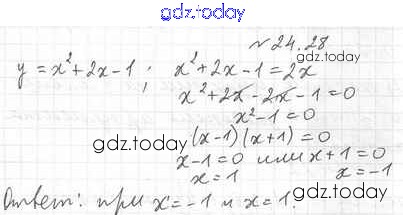 gdz.today
№ 24.28
gdz.today
y = x² + 2x - 1 ; x² + 2x - 1 = 2x
x² + 2x - 2x - 1 = 0
x² - 1 = 0
gdz.today
(x-1)(x+1) = 0
gdz.today
x-1=0 или x+1=0
x=1 x=-1
gdz.today
Ответ: при x = -1 и x = 1.